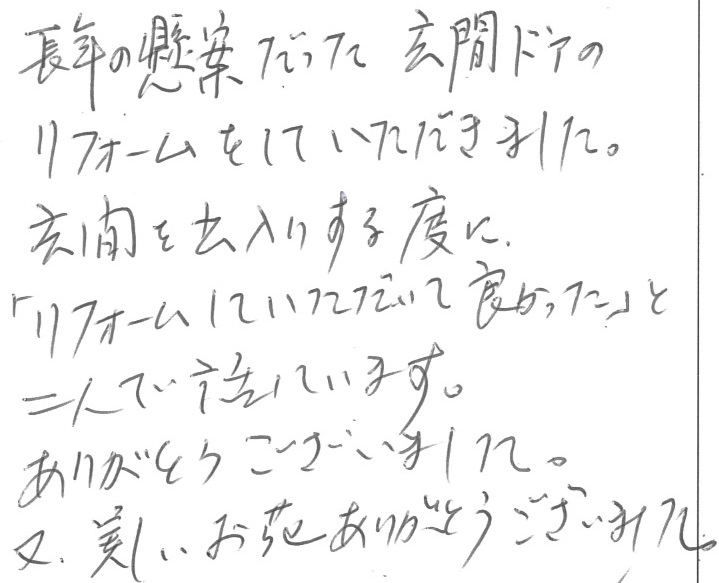 長年の懸案だった玄関ドアの
リフォームをしていただきました。
玄関を出入りする度に、
「リフォームしていただいて良かった」と
二人で話しています。
ありがとうございました。
又、美しいお花ありがとうございました。